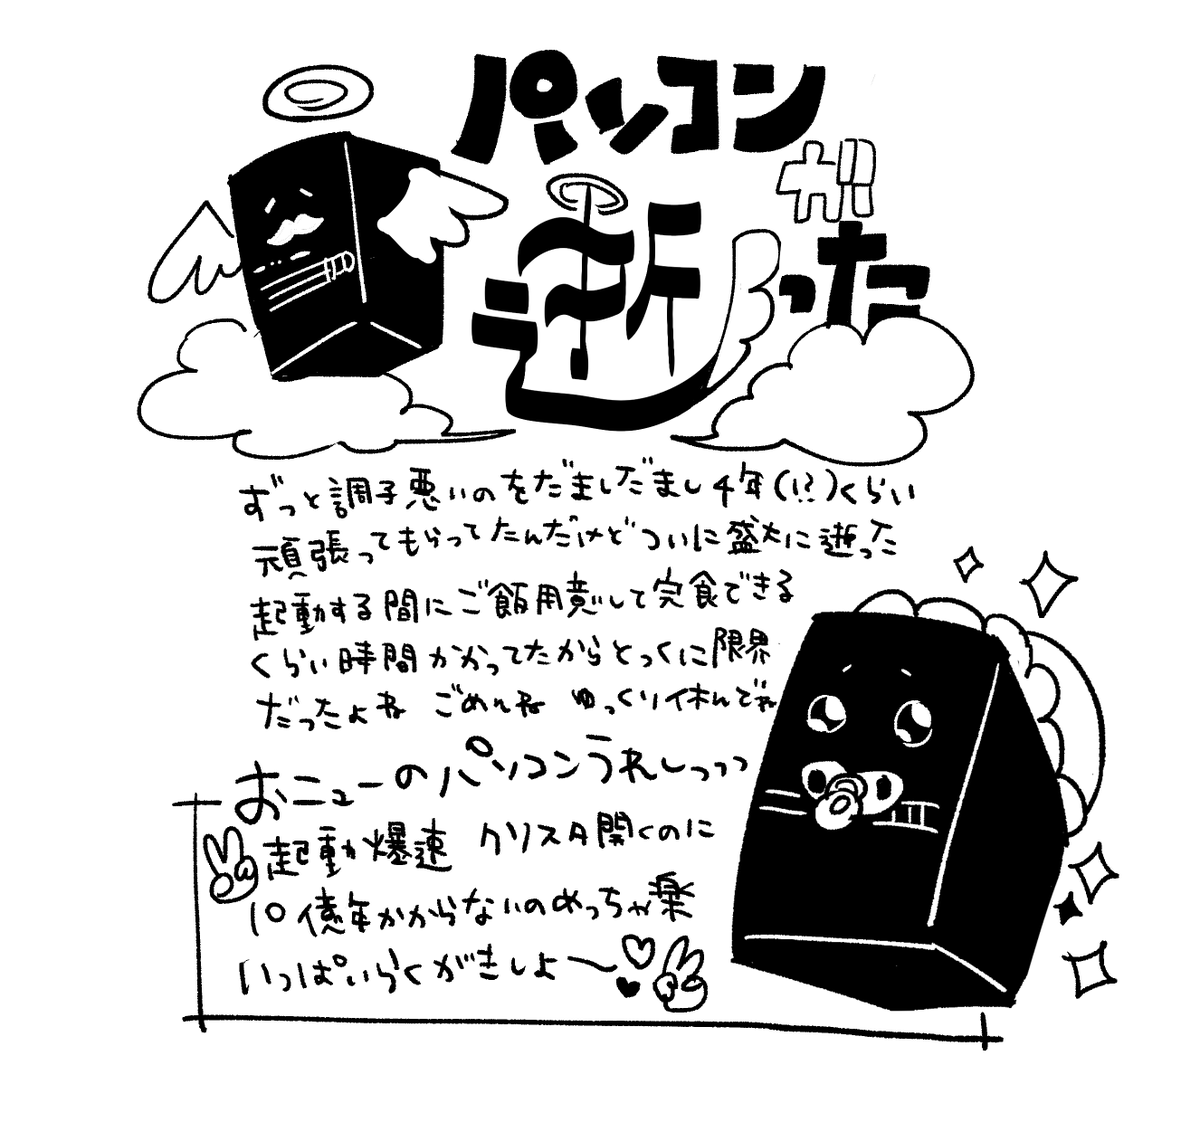 パソコン
が
逝った
ずっと調子悪いのをだましだまし4年(!?)くらい
頑張ってもらってたんだけどついに盛大に逝った
起動する間にご飯用意して完食できる
くらい時間かかってたからとっくに限界
だったよね ごめんね ゆっくり休んでね
おニューのパソコンうれしっっっ
起動爆速 クリスタ開くのに
10億年かからないのめっちゃ楽
いっぱいらくがきしよ〜